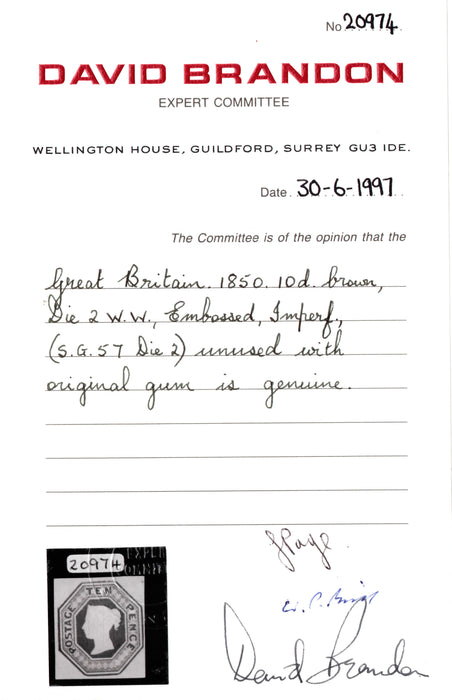 No. 20974
DAVID BRANDON
EXPERT COMMITTEE
WELLINGTON HOUSE, GUILDFORD, SURREY GU3 1DE.
Date. 30-6-1997
The Committee is of the opinion that the
Great Britain. 1850. 10d. brown,
Die 2 W.W., Embossed, Imperf.,
(S.G. 57 Die 2) unused with
original gum is genuine.
JPage.
David Brandon
20974
EXPERT
COMMITTEE
POSTAGE TEN PENCE